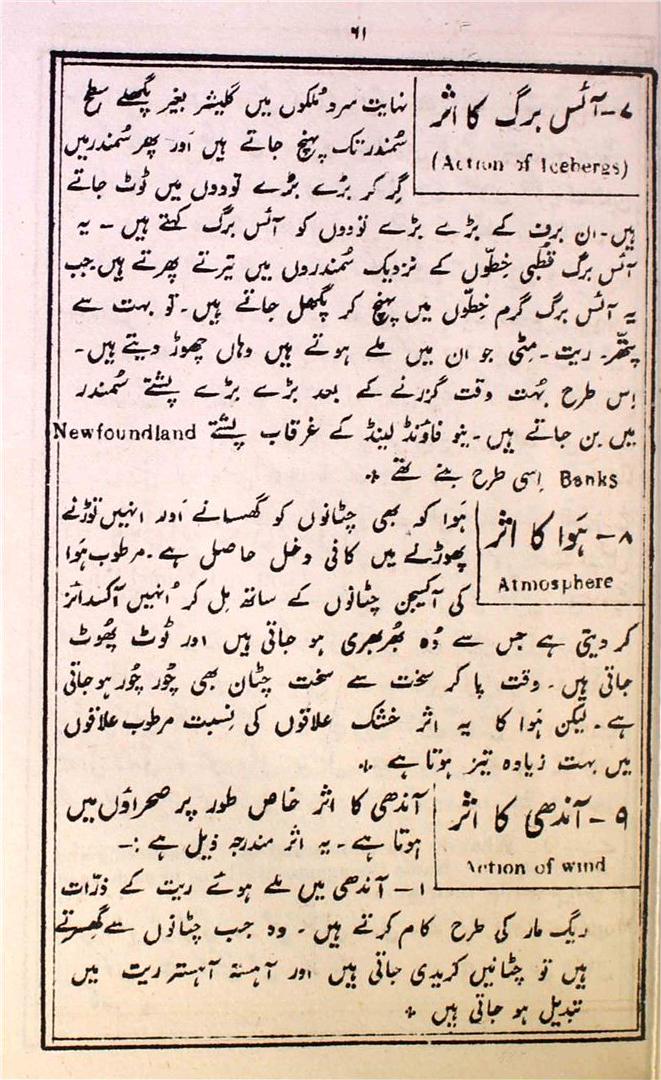 ٦١
٧- آئس برگ کا اثر
(Action of Icebergs)
نہایت سرد مُلکوں میں گلیشر بغیر پگھلے سطح
سُمندر تک پہنچ جاتے ہیں اَور پھر سُمندر میں
گِر کر بڑے بڑے تودوں میں ٹوٹ جاتے
ہیں۔ ان برف کے بڑے بڑے تودوں کو آئس برگ کہتے ہیں۔ یہ
آئس برگ قُطبی خِطّوں کے نزدیک سُمندروں میں تیرتے پھرتے ہیں۔ جب
یہ آئس برگ گرم خِطّوں میں پہنچ کر پگھل جاتے ہیں۔ تو بہت سے
پتھّر۔ ریت۔ مِٹی جو ان میں ملے ہوتے ہیں وہاں چھوڑ دیتے ہیں۔
اِس طرح بُہت وقت گزرنے کے بعد بڑے بڑے پشتے سُمندر
میں بن جاتے ہیں۔ نیو فاؤنڈ لینڈ کے غرقاب پشتے Newfoundland
Banks اِسی طرح بنے تھے *
٨- ہَوا کا اثر
Atmosphere
ہَوا کو بھی چٹانوں کو گھسانے اَور انہیں توڑنے
پھوڑنے میں کافی دخل حاصل ہے۔ مرطوب ہَوا
کی آکسیجن چٹانوں کے ساتھ مِل کر اُنہیں آکسدائز
کر دیتی ہے جس سے وُہ بُھربُھری ہو جاتی ہیں اور ٹوٹ پھُوٹ
جاتی ہیں۔ وقت پا کر سخت سے سخت چٹان بھی چُور چُور ہو جاتی
ہے۔ لیکن ہَوا کا یہ اثر خشک علاقوں کی نِسبت مرطوب علاقوں
میں بہت زیادہ تیز ہوتا ہے *
٩- آندھی کا اثر
Action of wind
آندھی کا اثر خاص طور پر صحراؤں میں
ہوتا ہے۔ یہ اثر مندرجہ ذیل ہے :-
١- آندھی میں ملے ہوئے ریت کے ذرّات
ریگ مار کی طرح کام کرتے ہیں۔ وہ جب چٹانوں سے گھِسرتے
ہیں تو چٹانیں کریدی جاتی ہیں اور آہستہ آہستہ ریت میں
تبدیل ہو جاتی ہیں *